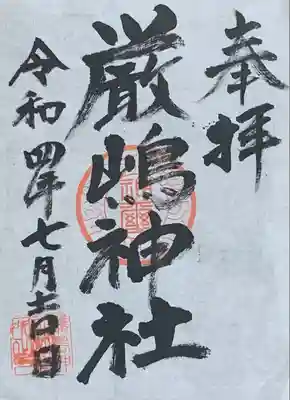 奉拝
厳嶋神社
令和四年七月吉日